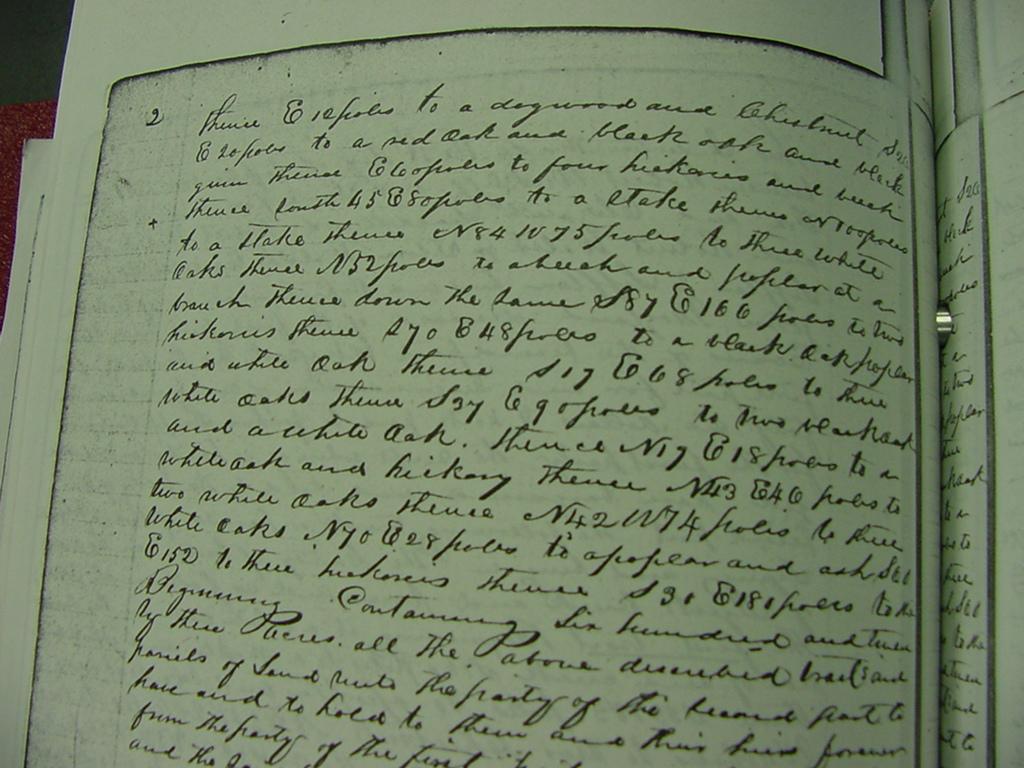 2 thence E 12 poles to a dogwood and Chestnut S20
E 20 poles to a red oak and black oak and black
gum thence E 60 poles to four hickories and beech
thence south 45 E 80 poles to a stake thence N 100 poles
+ to a stake thence N84 W 75 poles to three white
Oaks thence N32 poles to a beech and poplar at a
branch thence down the same S87 E 166 poles to two
hickories thence S70 E 48 poles to a black Oak poplar
and white Oak thence S17 E 68 poles to three
white oaks thence S37 E 90 poles to two black oak
and a white Oak. thence N17 E 18 poles to a
white oak and hickory thence N43 E 46 poles to
two white oaks thence N42 W 74 poles to three
white oaks N70 E 28 poles to a poplar and ash S61
E 152 to three hickories thence S31 E 181 poles to the
Beginning Containing Six hundred and twen
ty three acres. all the above described tracts and
parcels of Land unto the party of the second part to
have and to hold to them and their heirs forever
from the party of the first
and the